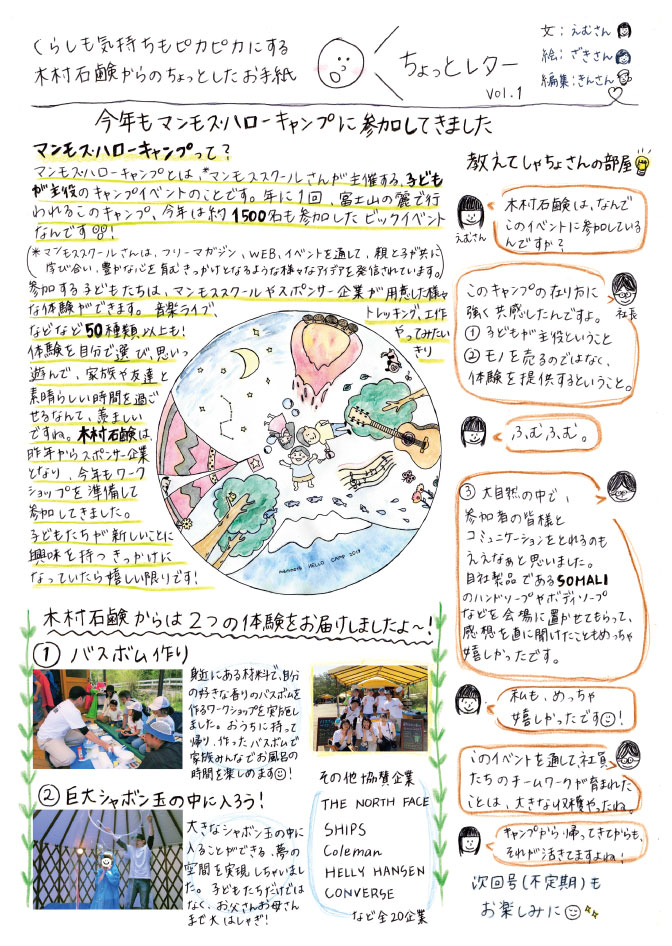 くらしも気持ちもピカピカにする
木村石鹸からのちょっとしたお手紙
ちょっとレター
vol.1
文:えむさん
絵:ざきさん
編集:きんさん
今年もマンモス・ハローキャンプに参加してきました
マンモス・ハローキャンプって?
マンモスハローキャンプとは、*マンモススクールさんが主催する、子ども
が主役のキャンプイベントのことです。年に1回、富士山の麓で行
われるこのキャンプ、今年は約1500名も参加したビックイベント
なんです!
(*マンモススクールさんは、フリーマガジン、WEB、イベントを通して、親と子が共に
学び合い、豊かな心を育むきっかけとなるような様々なアイデアを発信されています。)
参加する子どもたちは、マンモススクールやスポンサー企業が用意した様々
な体験ができます。音楽ライブ、トレッキング、工作
などなど50種類以上も!やってみたい
体験を自分で選び、思いっきり
遊んで、家族や友達と
素晴らしい時間を過ご
せるなんて、羨ましい
ですね。木村石鹸は、
昨年からスポンサー企業
となり、今年もワーク
ショップを準備して
参加してきました。
子どもたちが新しいことに
興味を持つきっかけに
なっていたら嬉しい限りです!
mammoth HELLO CAMP 2019
木村石鹸からは2つの体験をお届けしましたよ〜!
① バスボム作り
身近にある材料で、自分
の好きな香りのバスボムを
作るワークショップを実施し
ました。おうちに持って
帰り、作ったバスボムで
家族みんなでお風呂の
時間を楽しめます!
② 巨大シャボン玉の中に入ろう!
大きなシャボン玉の中に
入ることができる、夢の
空間を実現しちゃいまし
た。子どもたちだけでは
なく、お父さんお母さん
まで大はしゃぎ!
その他協賛企業
THE NORTH FACE
SHIPS
Coleman
HELLY HANSEN
CONVERSE
など全20企業
教えてしゃちょさんの部屋
えむさん
木村石鹸は、なんで
このイベントに参加している
んですか?
社長
このキャンプの在り方に
強く共感したんですよ。
① 子どもが主役ということ
② モノを売るのではなく、
体験を提供するということ。
ふむふむ。
③ 大自然の中で、
参加者の皆様と
コミュニケーションをとれるのも
ええなぁと思いました。
自社製品であるSOMALI
のハンドソープやボディソープ
などを会場に置かせてもらって、
感想を直に聞けたこともめっちゃ
嬉しかったです。
私も、めっちゃ
嬉しかったです!
このイベントを通して、社員
たちのチームワークが育まれた
ことは、大きな収穫やったね。
キャンプから帰ってきてからも、
それが活きてますよね!
次回号(不定期)も
お楽しみに